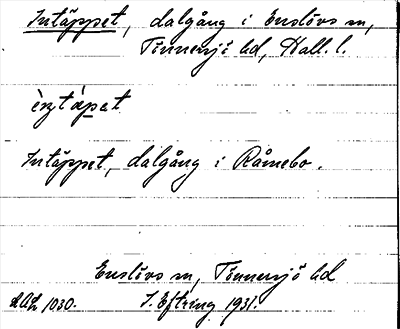 Intäppet, dalgång i Enslövs sn,
Tönnersjö hd, Hall. l.
Intäppet, dalgång i Råmebo.
Enslövs sn, Tönnersjö hd
1030. J. Eftring 1931.